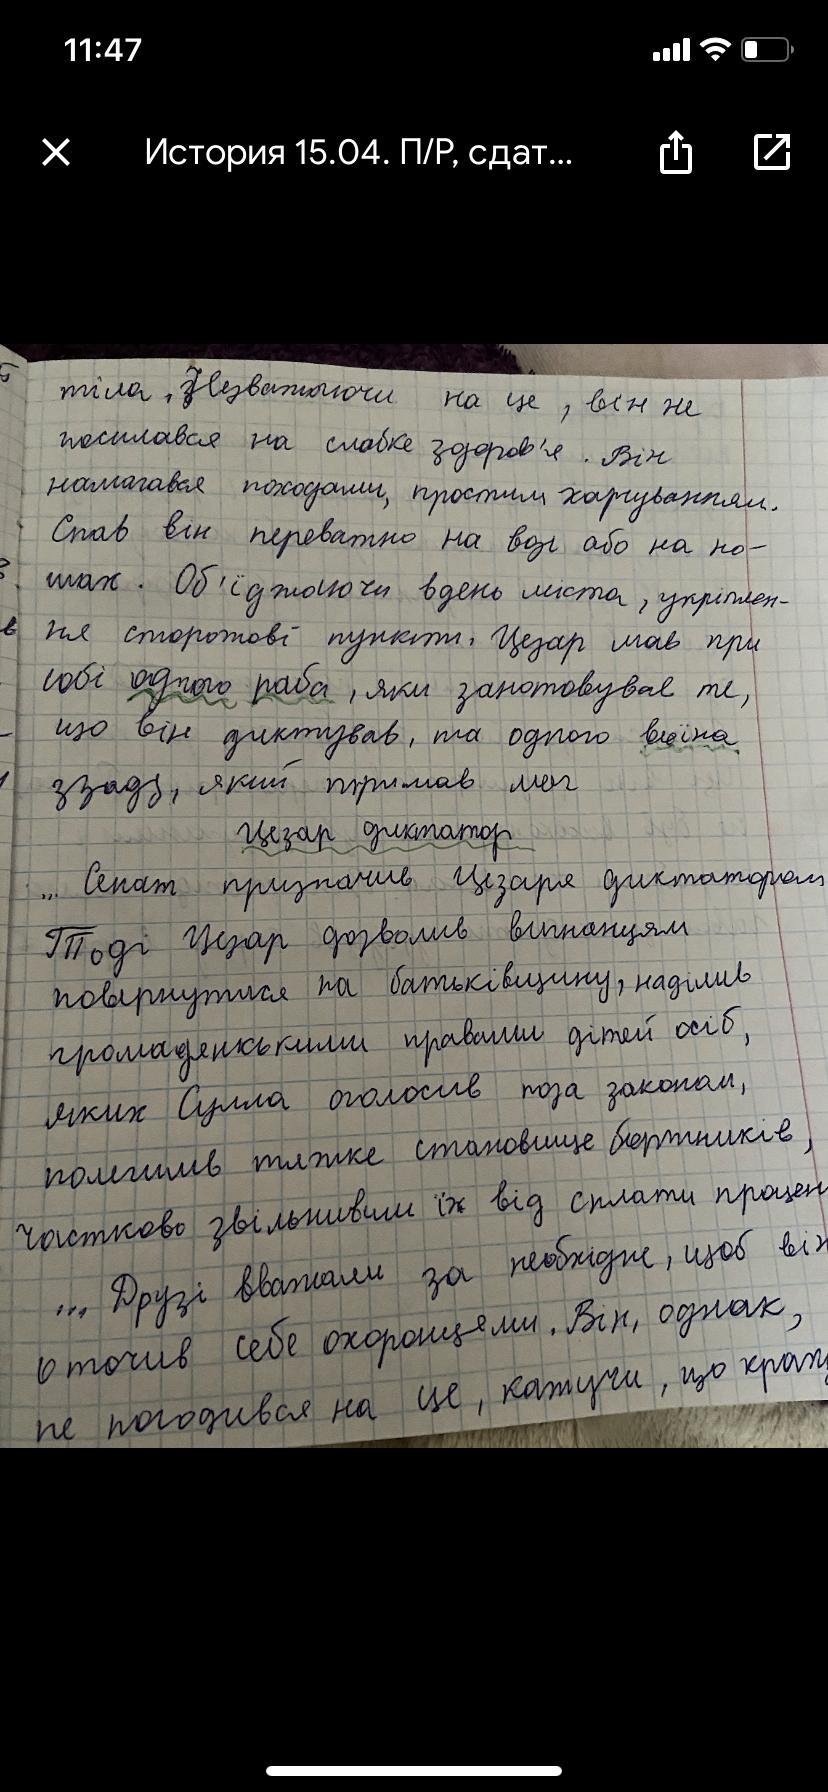 11:47
История 15.04. П/Р, сдат...
тіла, Незважаючи на це, він не
посилався на слабке здоров'я. Він
намагався походами, простим харчуванням.
Спав він переважно на возі або на но-
шах. Об'їджаючи вдень міста, укріплен-
ня сторожові пункти. Цезар мав при
собі одного раба, яки занотовував те,
що він диктував, та одного воїна
ззаду, який тримав меч
Цезар диктатор
... Сенат призначив Цезаря диктатором
Тоді Цезар дозволив вигнанцям
повернутися на батьківщину, наділив
громадянськими правами дітей осіб,
яких Сулла оголосив поза законом,
полегшив тяжке становище боржників,
частково звільнивши їх від сплати процен
... Друзі вважали за необхідне, щоб він
оточив себе охоронцями. Він, однак,
не погодився на це, кажучи, що кращ